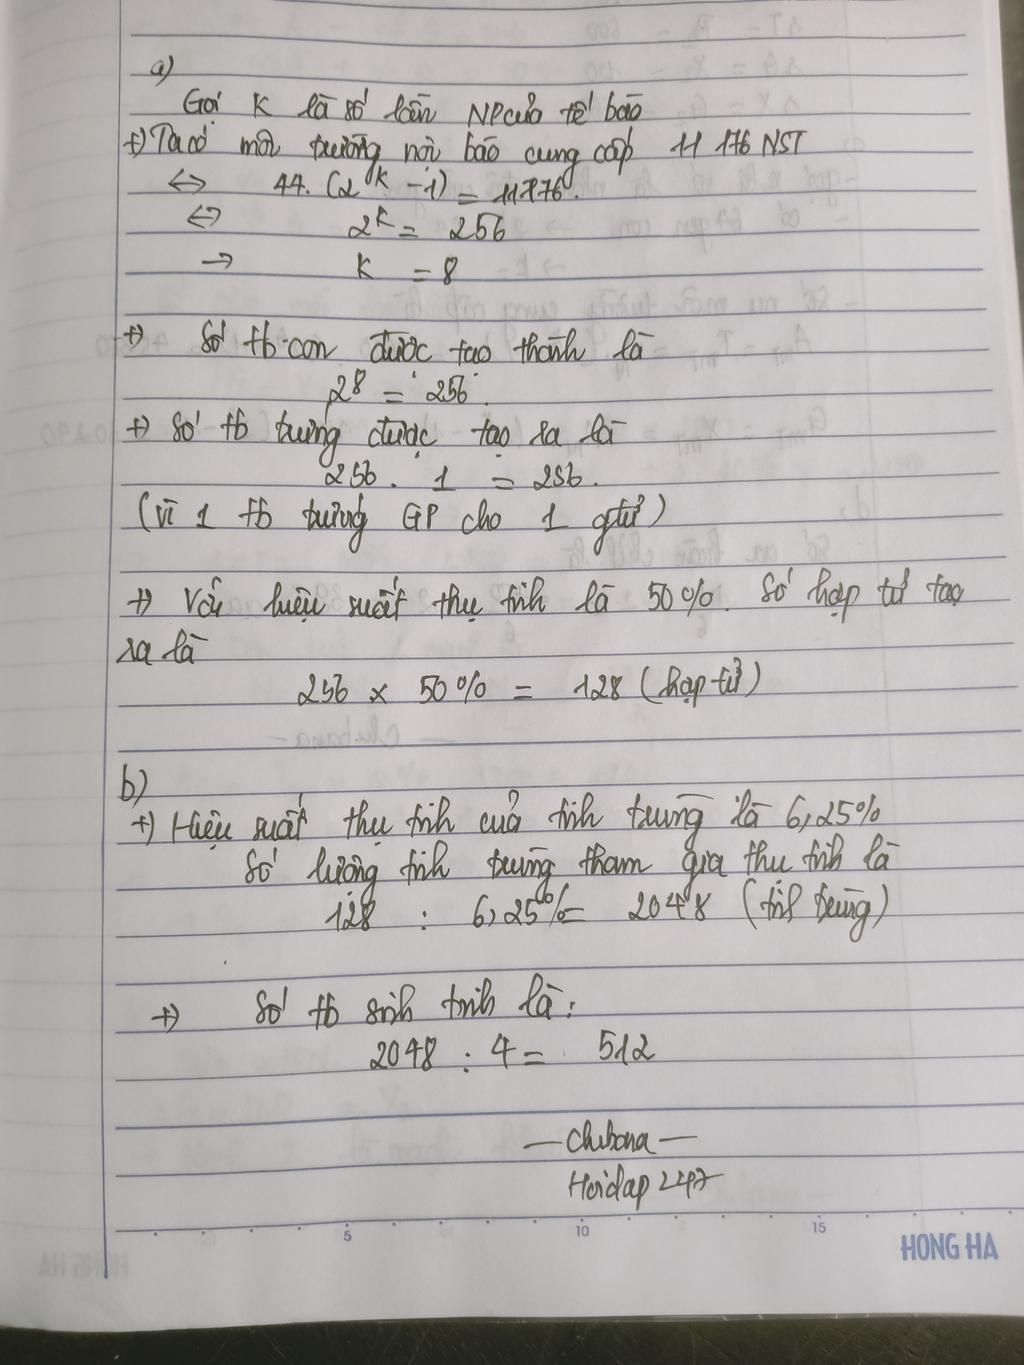 a)
Gọi K là số lần NP của tế bào
+) Ta có môi trường nội bào cung cấp 11 176 NST
<=> 44. (2^K - 1) = 11176.
<=> 2^K = 256
-> K = 8
+) Số tb con được tạo thành là
2^8 = 256.
+) Số tb trứng được tạo ra là
256 . 1 = 256.
(vì 1 tb trứng GP cho 1 gtử)
+) Với hiệu suất thụ tinh là 50%. Số hợp tử tạo
ra là
256 x 50% = 128 (hợp tử)
b)
+) Hiệu suất thụ tinh của tinh trùng là 6,25%
Số lượng tinh trùng tham gia thụ tinh là
128 : 6,25% = 2048 (tinh trùng)
+) Số tb sinh tinh là:
2048 : 4 = 512
— Chibana —
Hoidap 247
5 10 15
HONG HA